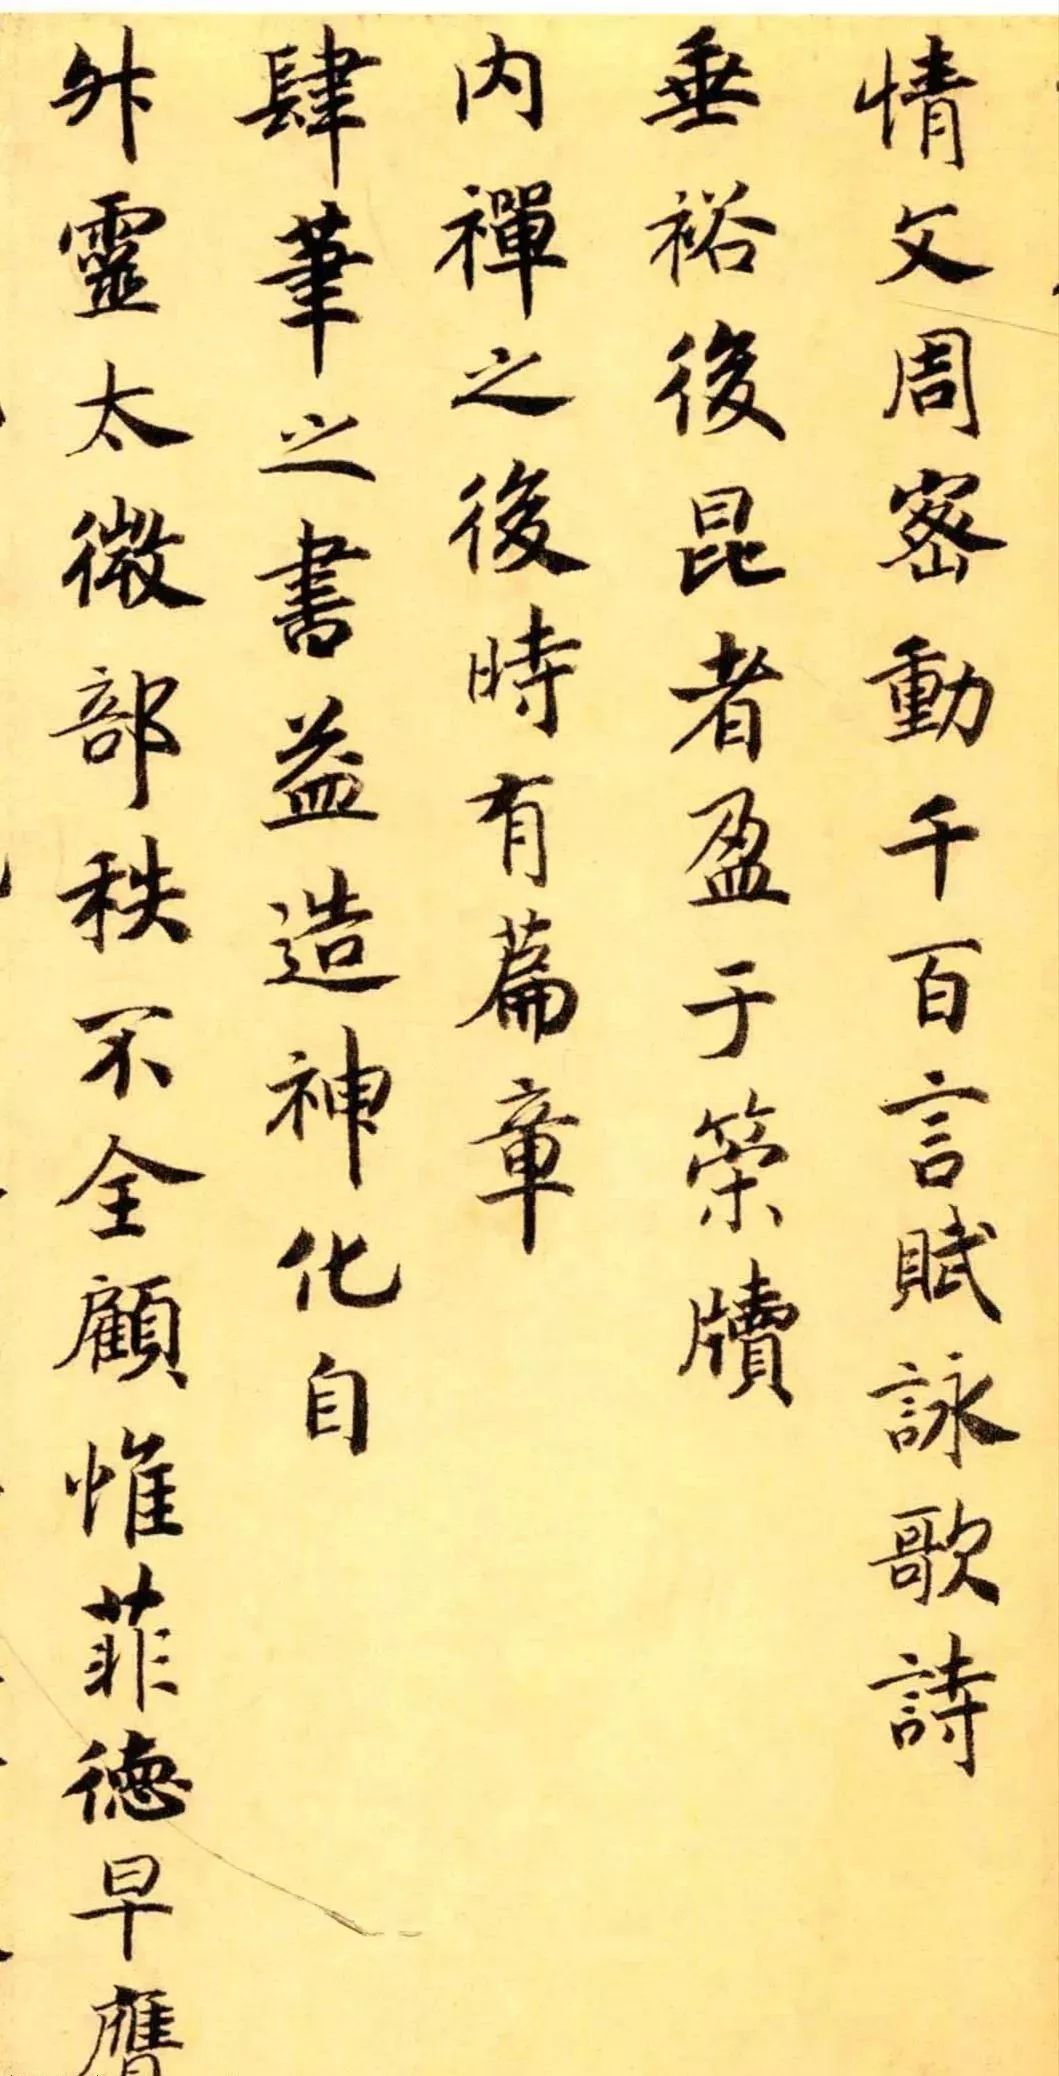 情文周密動千百言賦詠歌詩
垂裕後昆者盈于篋牘
内禪之後時有篇章
肆筆之書益造神化自
升靈太微部秩不全顧惟菲德早膺